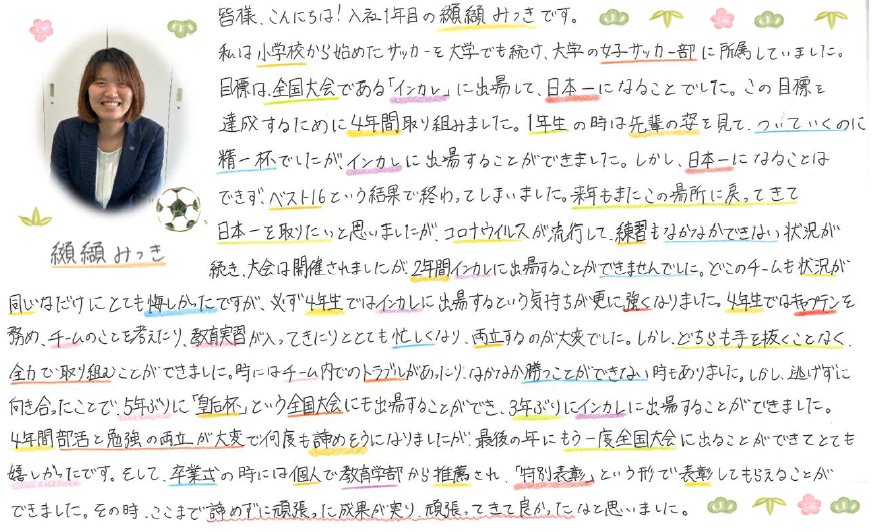 皆様、こんにちは！入社1年目の纐纈みつきです。
私は小学校から始めたサッカーを大学でも続け、大学の女子サッカー部に所属していました。
目標は、全国大会である「インカレ」に出場して、日本一になることでした。この目標を
達成するために4年間取り組みました。1年生の時は先輩の姿を見て、ついていくのに
精一杯でしたが、インカレに出場することができました。しかし、日本一になることは
できず、ベスト16という結果で終わってしまいました。来年もまたこの場所に戻ってきて
日本一を取りたいと思いましたが、コロナウイルスが流行して、練習もなかなかできない状況が
続き、大会は開催されましたが、2年間インカレに出場することができませんでした。どこのチームも状況が
同じなだけにとても悔しかったですが、必ず4年生ではインカレに出場するという気持ちが更に強くなりました。4年生ではキャプテンを
務め、チームのことを考えたり、教育実習が入ってきたりととても忙しくなり、両立するのが大変でした。しかし、どちらも手を抜くことなく、
全力で取り組むことができました。時にはチーム内でのトラブルがあったり、なかなか勝つことができない時もありました。しかし、逃げずに
向き合ったことで、5年ぶりに「皇后杯」という全国大会にも出場することができ、3年ぶりにインカレに出場することができました。
4年間部活と勉強の両立が大変で何度も諦めそうになりましたが、最後の年にもう一度全国大会に出ることができてとても
嬉しかったです。そして、卒業式の時には個人で教育学部から推薦され、「特別表彰」という形で表彰してもらえることが
できました。その時、ここまで諦めずに頑張った成果が実り、頑張ってきて良かったなと思いました。
纐纈みつき